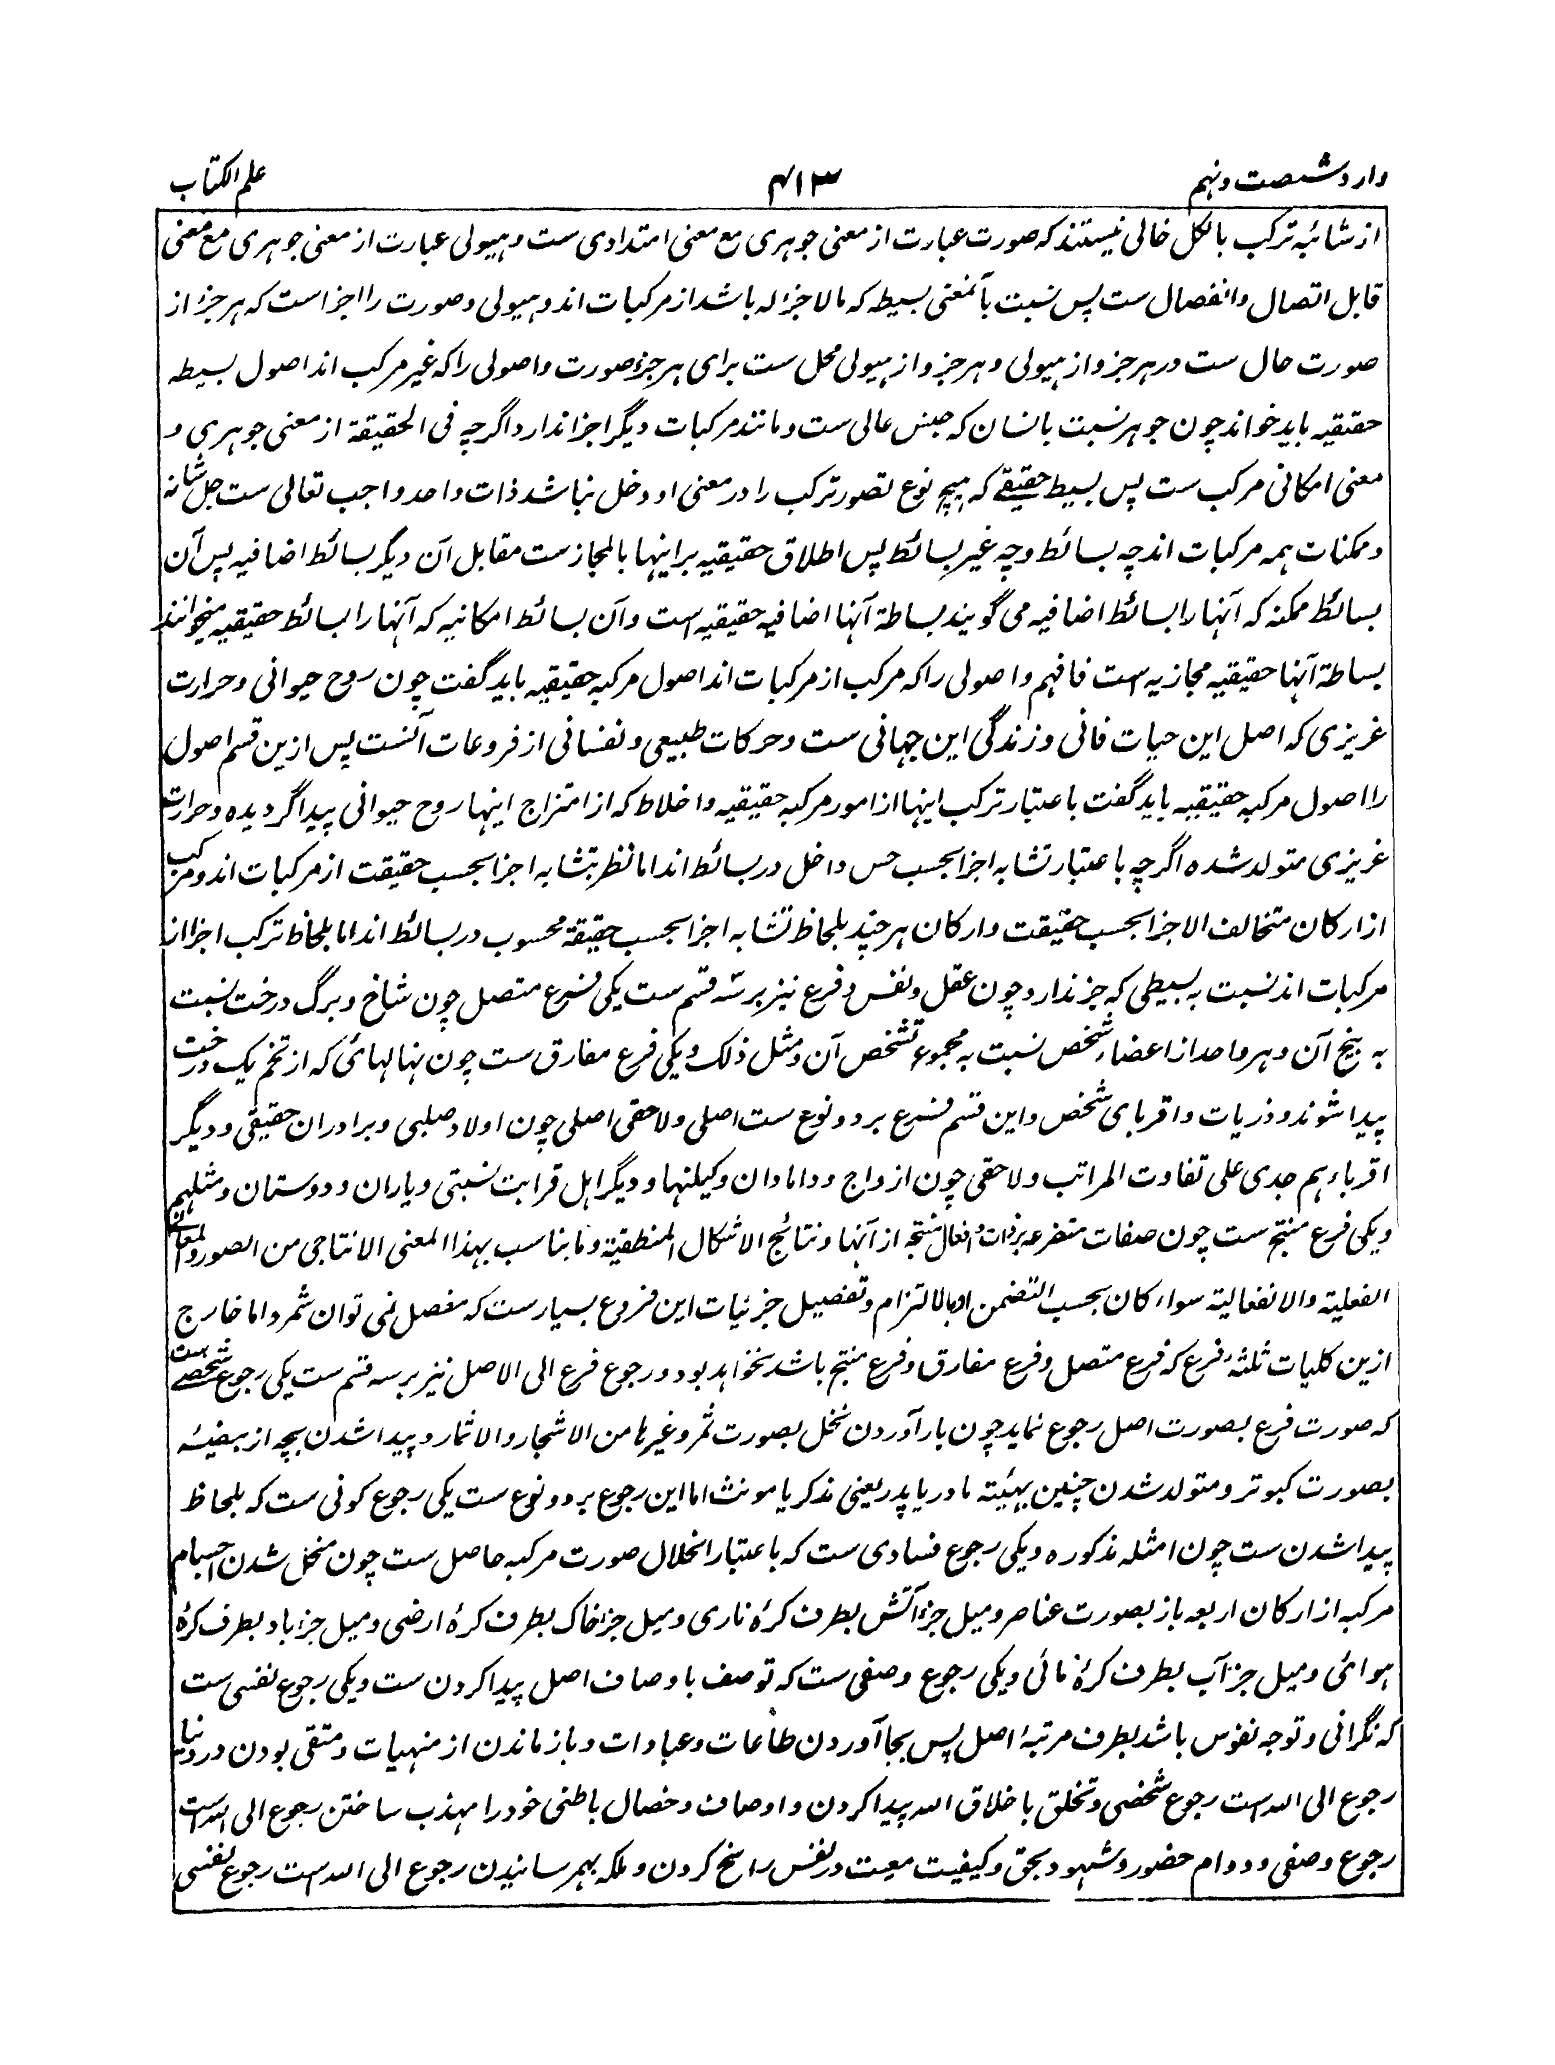 وارد شصت و نهم
۴۱۳
علم الکتاب
از شائبه ترکب بالکل خالی نیستند که صورت عبارت از معنی جوهری مع معنی امتدادی ست و هیولی عبارت از معنی جوهری مع معنی
قابل اتصال و انفصال ست پس نسبت بآنمعنی بسیطه که مالا جزء له باشد از مرکبات اند و هیولی و صورت را اجزاست که هر جزء از
صورت حال ست در هر جزو از هیولی و هر جزو از هیولی محل ست برای هر جزء صورت و اصولی را که غیر مرکب اند اصول بسیطه
حقیقیه باید خواند چون جوهر نسبت بانسان که جنس عالی ست و مانند مرکبات دیگر اجزا ندارد اگرچه فی الحقیقة از معنی جوهری و
معنی امکانی مرکب ست پس بسیط حقیقے که هیچ نوع تصور ترکب را در معنی او دخل نباشد ذات واحد واجب تعالی ست جل شانه
و ممکنات همه مرکبات اند چه بسائط و چه غیر بسائط پس اطلاق حقیقیه بر اینها بالمجاز ست مقابل آن دیگر بسائط اضافیه پس آن
بسائط ممکنه که آنها را بسائط اضافیه می گویند بساطة آنها اضافیه حقیقیه است و آن بسائط امکانیه که آنها را بسائط حقیقیه میخوانند
بساطة آنها حقیقیه مجازیه است فافهم و اصولی را که مرکب از مرکبات اند اصول مرکبه حقیقیه باید گفت چون روح حیوانی و حرارت
غریزی که اصل این حیات فانی و زندگی این جهانی ست و حرکات طبیعی و نفسانی از فروعات آنست پس ازین قسم اصول
را اصول مرکبه حقیقیه باید گفت باعتبار ترکب اینها از امور مرکبه حقیقیه و اخلاط که از امتزاج اینها روح حیوانی پیدا گردیده و حرارت
غریزی متولد شده اگرچه باعتبار تشابه اجزا بحسب حس داخل در بسائط اند اما نظر بتشابه اجزا بحسب حقیقت از مرکبات اند و مرکب
از ارکان متخالف الاجزا بحسب حقیقت و ارکان هر چند بلحاظ تشابه اجزا بحسب حقیقة محسوب در بسائط اند اما بلحاظ ترکب اجزا از
مرکبات اند نسبت به بسیطی که جز ندارد چون عقل و نفس و فرع نیز بر سه قسم ست یکی فرع متصل چون شاخ و برگ درخت نسبت
به بیخ آن و هر واحد از اعضاء شخص نسبت به مجموع تشخص آن و مثل ذلک و یکی فرع مفارق ست چون نهالهائ که از تخم یک درخت
پیدا شوند و ذریات و اقربای شخص و این قسم فرع بر دو نوع ست اصلی و لاحقی اصلی چون اولاد صلبی و برادران حقیقی و دیگر
اقرباء هم جدی علی تفاوت المراتب و لاحقی چون ازواج و دامادان و کیلنها و دیگر اهل قرابت نسبتی و یاران و دوستان و مثلهم
و یکی فرع منتج ست چون صفات متفرعه بر ذات و افعال منتجه از آنها و نتائج الاشکال المنطقیة و ما یناسب بهذا المعنی الانتاجی من الصور و المعانی
الفعلیة و الانفعالیة سواء کان بحسب التضمن او بالالتزام و تفصیل جزئیات این فروع بسیار ست که مفصل نمی توان شمرد اما خارج
ازین کلیات ثلثهٔ فرع که فرع متصل و فرع مفارق و فرع منتج باشد نخواهد بود و رجوع فرع الی الاصل نیز بر سه قسم ست یکی رجوع شخصے ست
که صورت فرع بصورت اصل رجوع نماید چون بار آوردن نخل بصورت ثمر و غیرها من الاشجار و الاثمار و پیدا شدن بچه از بیضه
بصورت کبوتر و متولد شدن جنین بهیئته مادر یا پدر یعنی مذکر یا مونث اما این رجوع بر دو نوع ست یکی رجوع کونی ست که بلحاظ
پیدا شدن ست چون امثله مذکوره و یکی رجوع فسادی ست که باعتبار انحلال صورت مرکبه حاصل ست چون منحل شدن اجسام
مرکبه از ارکان اربعه باز بصورت عناصر و میل جزء آتش بطرف کرهٔ ناری و میل جزء خاک بطرف کرهٔ ارضی و میل جزء باد بطرف کرهٔ
هوائ و میل جزء آب بطرف کرهٔ مائی و یکی رجوع وصفی ست که توصف باوصاف اصل پیدا کردن ست و یکی رجوع نفسی ست
که نگرانی و توجه نفوس باشد بطرف مرتبهٔ اصل پس بجا آوردن طاعات و عبادات و باز ماندن از منهیات و متقی بودن در دنیا
رجوع الی الله است رجوع شخصی و تخلق باخلاق الله پیدا کردن و اوصاف و خصال باطنی خود را مهذب ساختن رجوع الی الله است
رجوع وصفی و دوام حضور و شهود بحق و کیفیت معیت در نفس راسخ کردن و ملکه بهم رسانیدن رجوع الی الله است رجوع نفسی